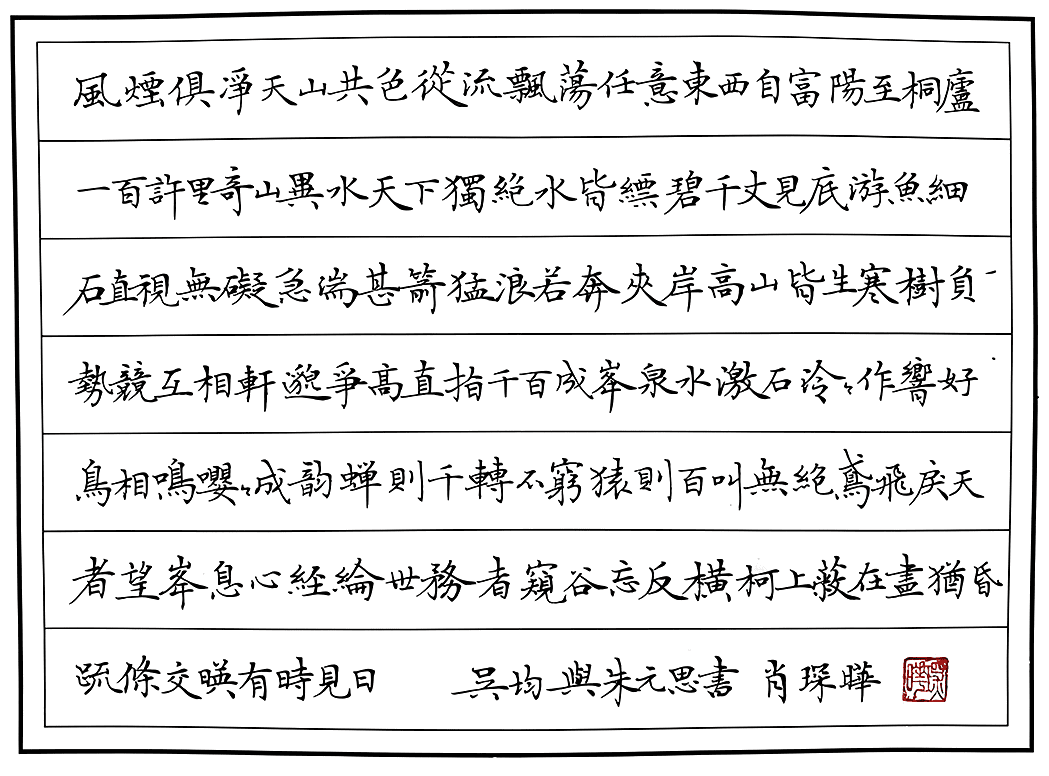 風煙俱淨天山共色從流飄蕩任意東西自富陽至桐廬
一百許里奇山異水天下獨絕水皆縹碧千丈見底游魚細
石直視無礙急湍甚箭猛浪若奔夾岸高山皆生寒樹負
勢競互相軒邈爭高直指千百成峯泉水激石泠々作響好
鳥相鳴嚶々成韵蝉則千轉不窮猿則百叫無絕鳶飛戾天
者望峯息心経綸世務者窺谷忘反橫柯上蔽在晝猶昏
疏條交暎有時見日 吳均與朱元思書 肖琛曄